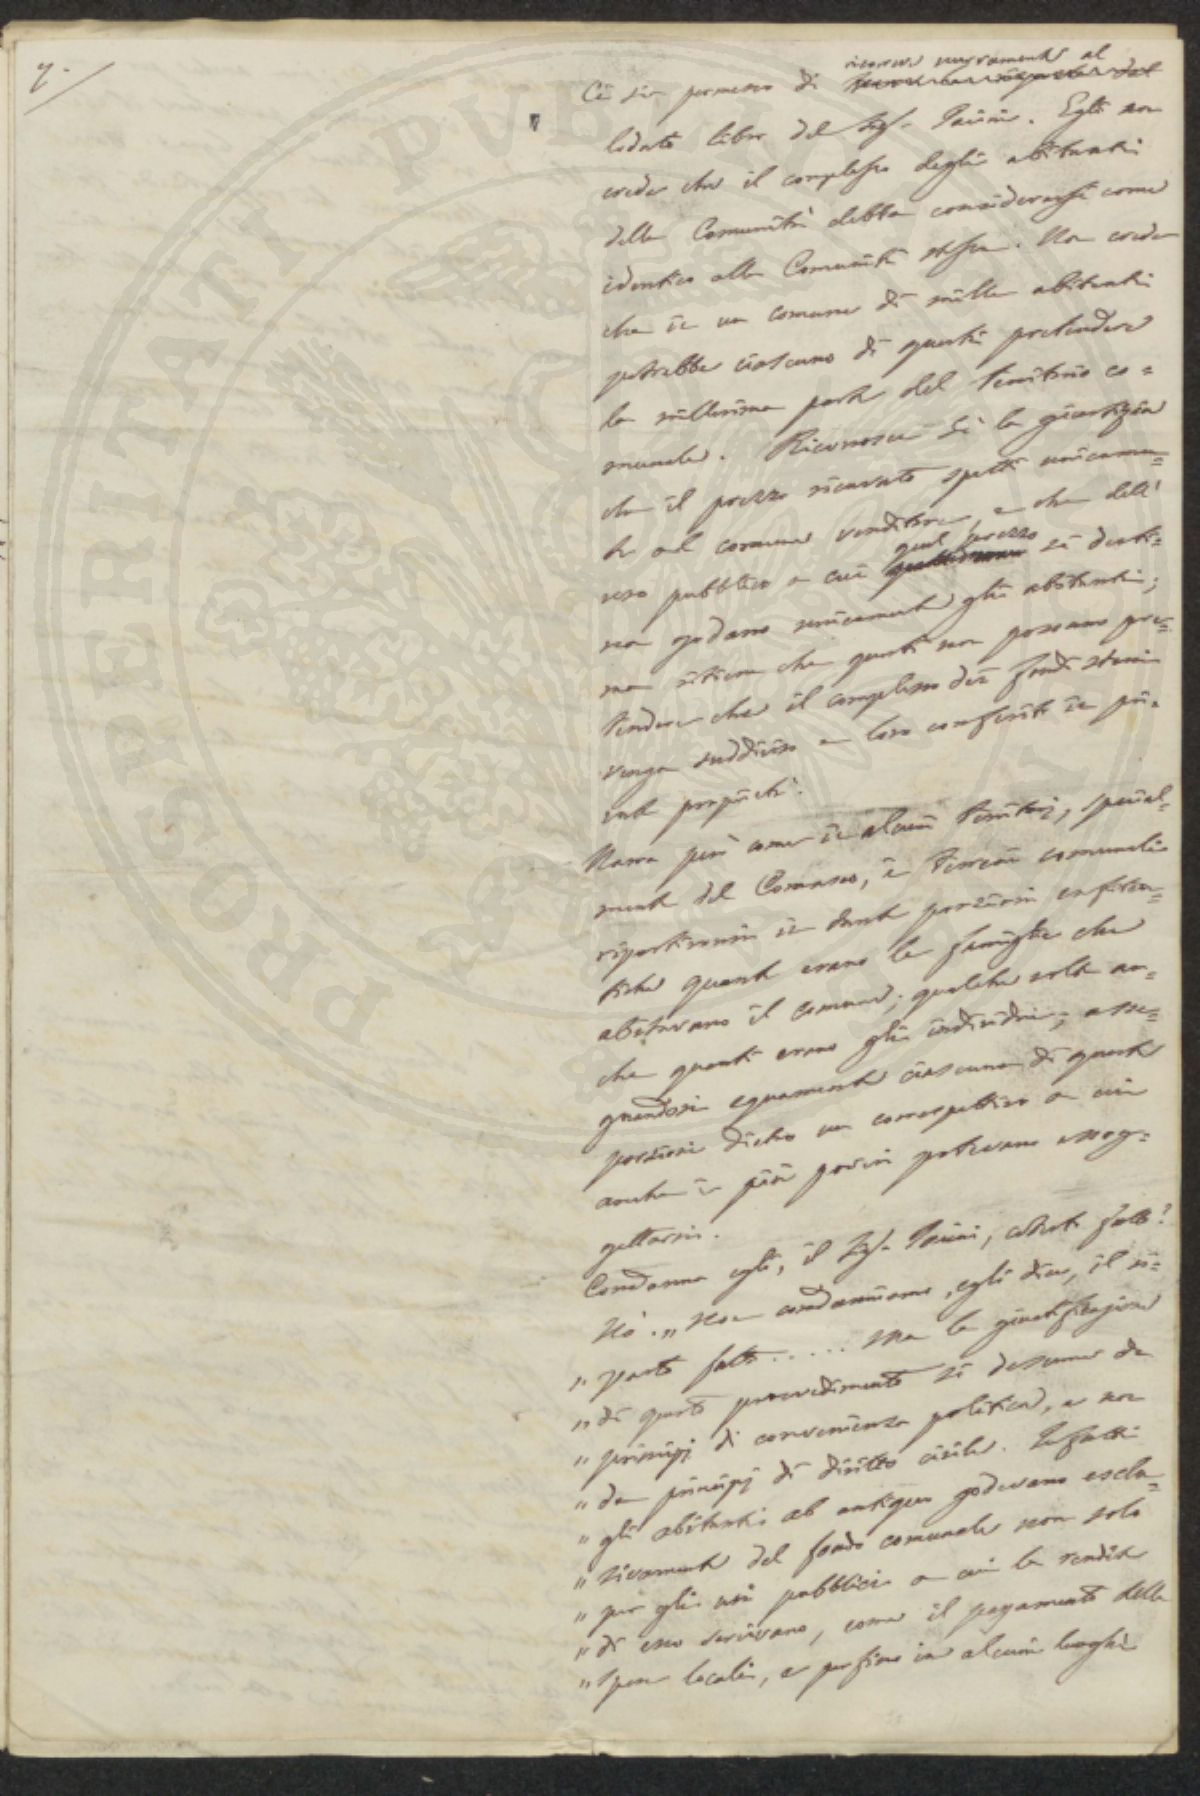 7.
Ci sia permesso di ricorrere nuovamente al
lodato libro del Sigr. Jacini. Egli non
crede che il complesso degli abitanti
della Comunità debba considerarsi come
identico alla Comunità stessa. Non crede
che in un comune di mille abitanti
potrebbe ciascuno di questi pretendere
la millesima parte del territorio co=
munale. Riconosce sì la giustizia
che il prezzo ricavato spetti unicamen=
te al comune venditore, e che dell'
uso pubblico a cui quel prezzo si desti=
na godano unicamente gli abitanti;
ma ritiene che questi non possano pre=
tendere che il complesso dei fondi stessi
venga suddiviso e loro conferito in pri=
vata proprietà.
Narra però come in alcuni territorj, special=
mente del Comasco, i terreni comunali
ripartironsi in tante porzioni enfiteu=
tiche quante erano le famiglie che
abitavano il comune; qualche volta an=
che quanti erano gli individui; asse=
gnandosi equamente ciascuna di queste
porzioni dietro un correspettivo a cui
anche i più poveri potevano assog=
gettarsi.
Condanna egli, il Sigr. Jacini, cotesti fatti?
No. „ Non condanniamo, egli dice, il ri=
„ parto fatto ...... Ma la giustificazione
„ di questo provvedimento si desume da
„ principj di convenienza politica, e non
„ da principj di diritto civile. Infatti
„ gli abitanti ab antiquo godevano esclu=
„ sivamente del fondo comunale non solo
„ per gli usi pubblici a cui le rendite
„ di esso servivano, come il pagamento delle
„ spese locali, e perfino in alcuni luoghi
PROSPERITATI PVBLICAE